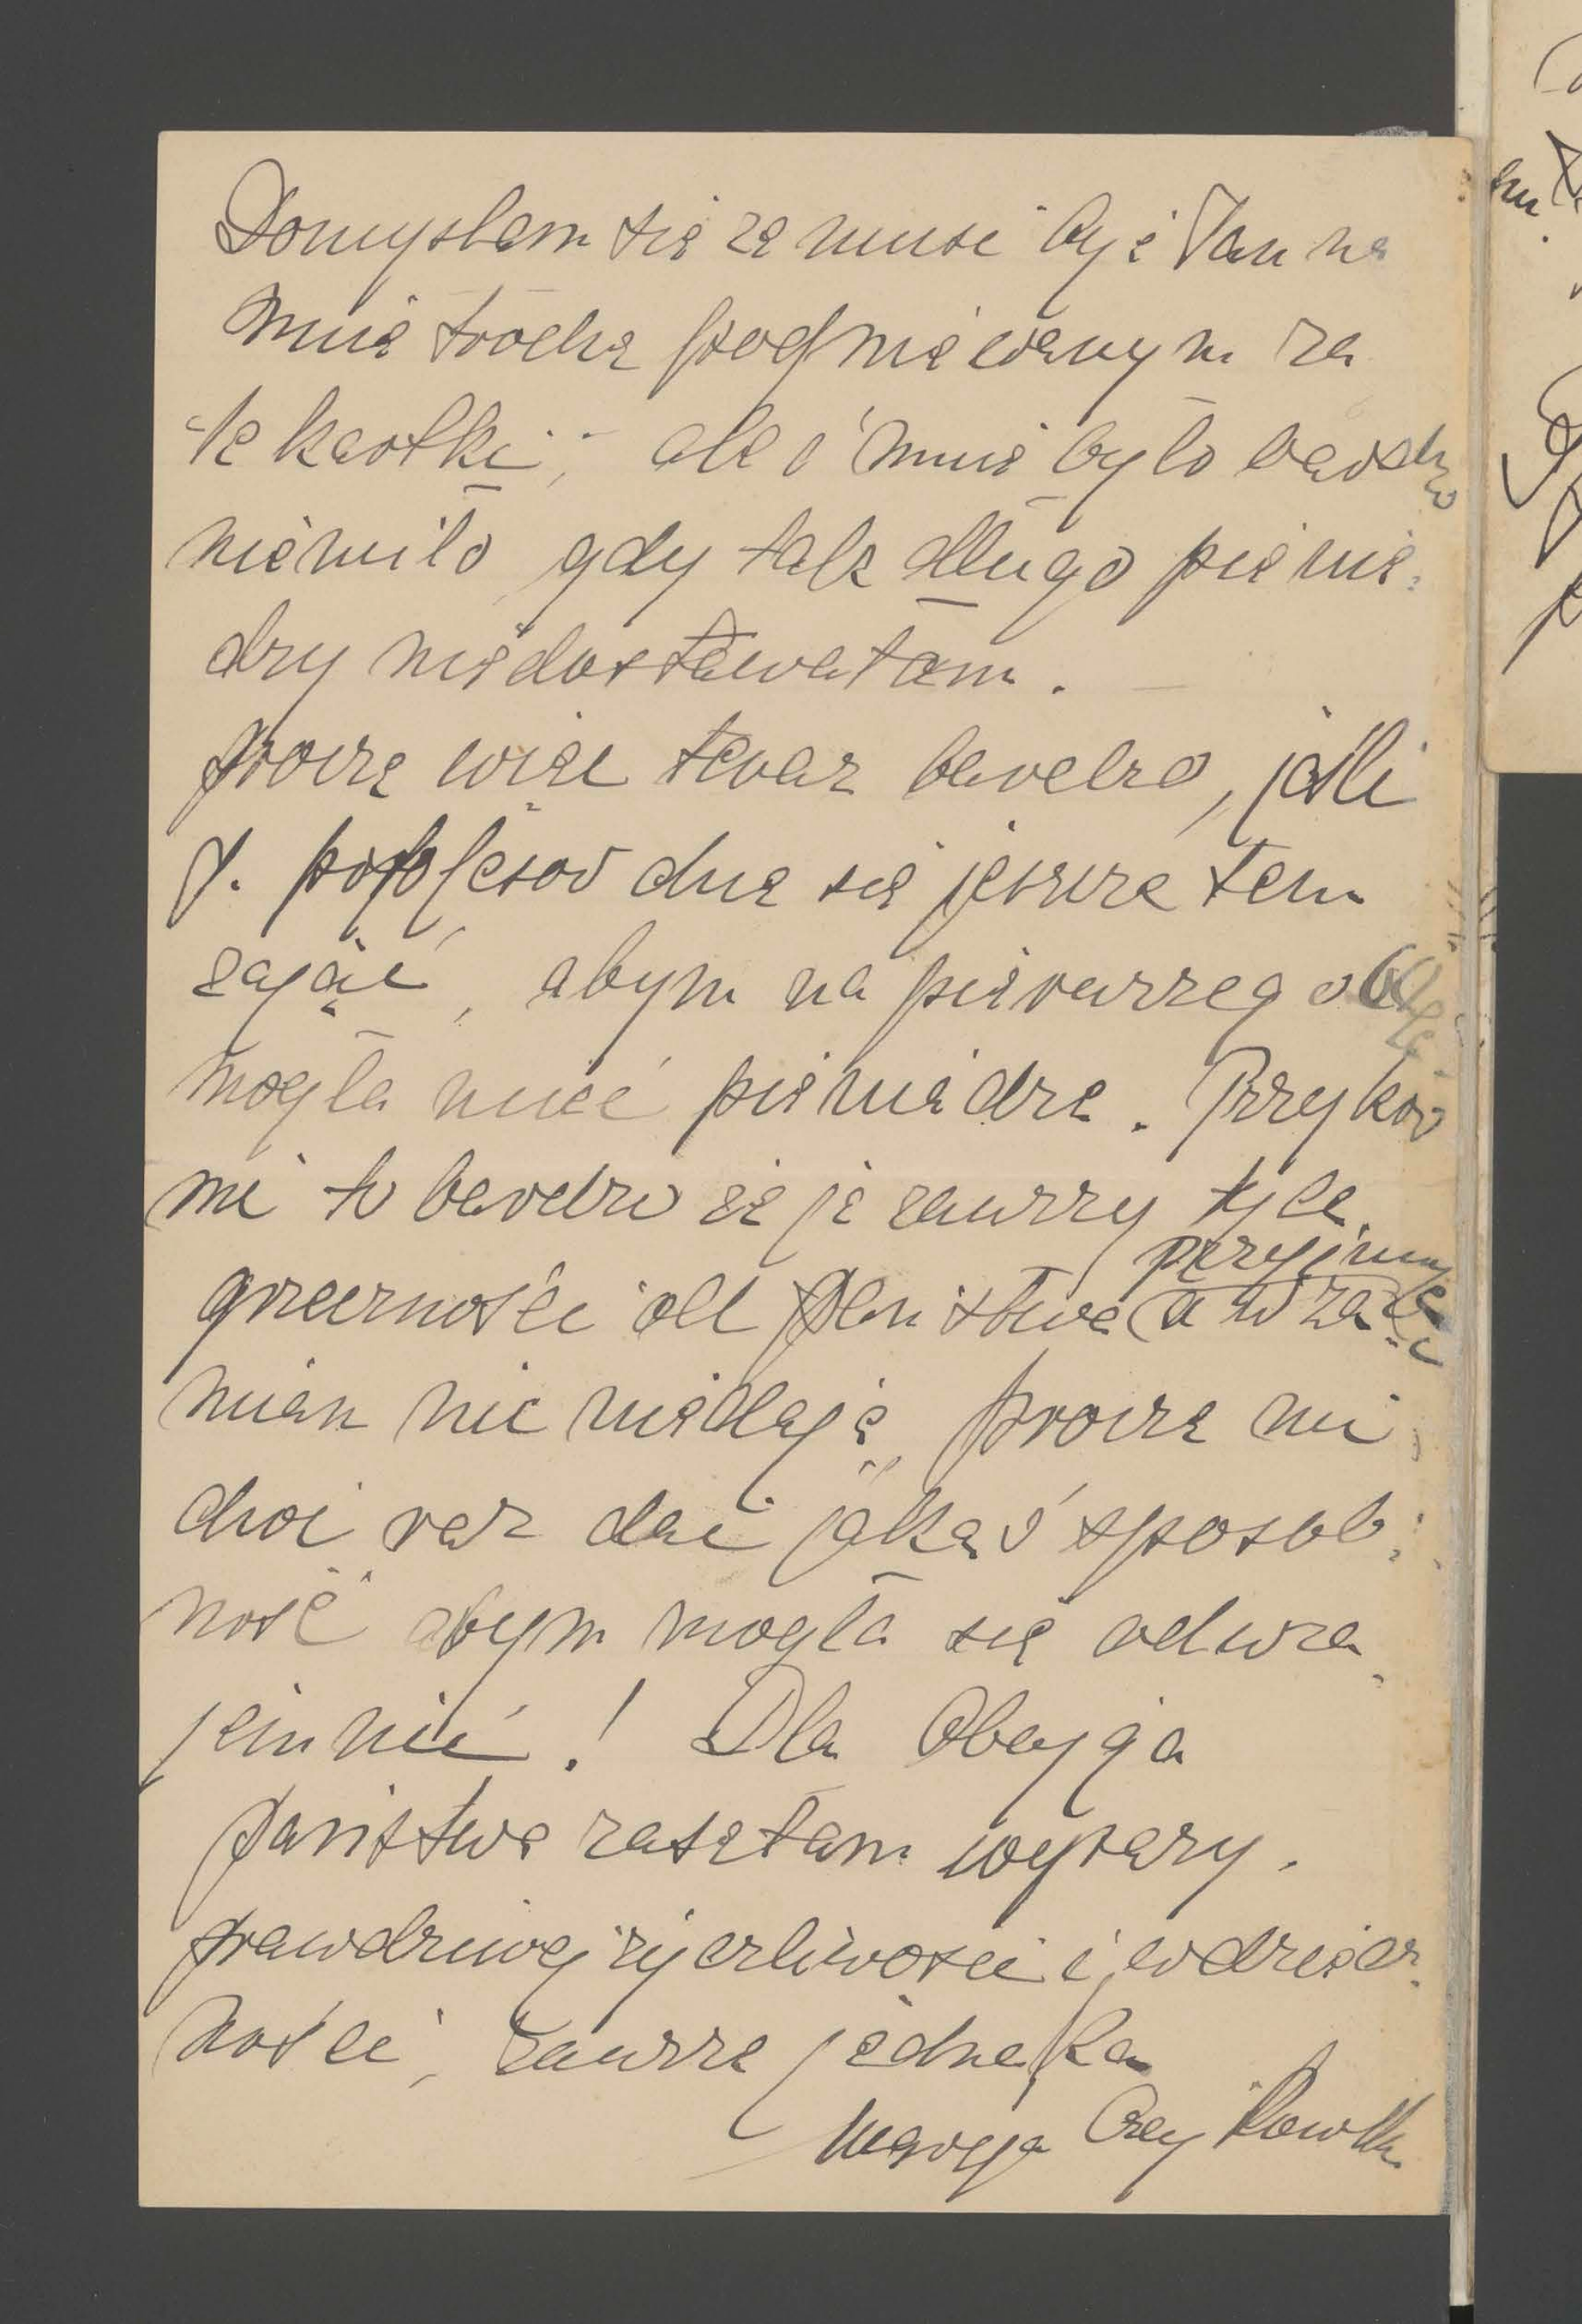 Domyślam się że musi być Pan na
mnie trochę pogniewanym za
te kartki, ale i mnie było bardzo
niemiło gdy tak długo pienię-
dzy niedostawałam.
proszę więc teraz bardzo, jeśli
P. profesor chce się jeszcze tem
zająć, abym na pierwszego
mogła mieć pieniądze. Przykro
mi to bardzo że ja zawszy tyle
grzeczności od Państwa przyjmuję
a w za-
mian nic niedaję, proszę mi
choć raz dać jakąś sposob-
ność abym mogła się odwza-
jemnić! Dla Obojga
państwa zasełam wyrazy
prawdziwej życzliwości i wdzięcz-
ności, zawsze jednaka
Marya